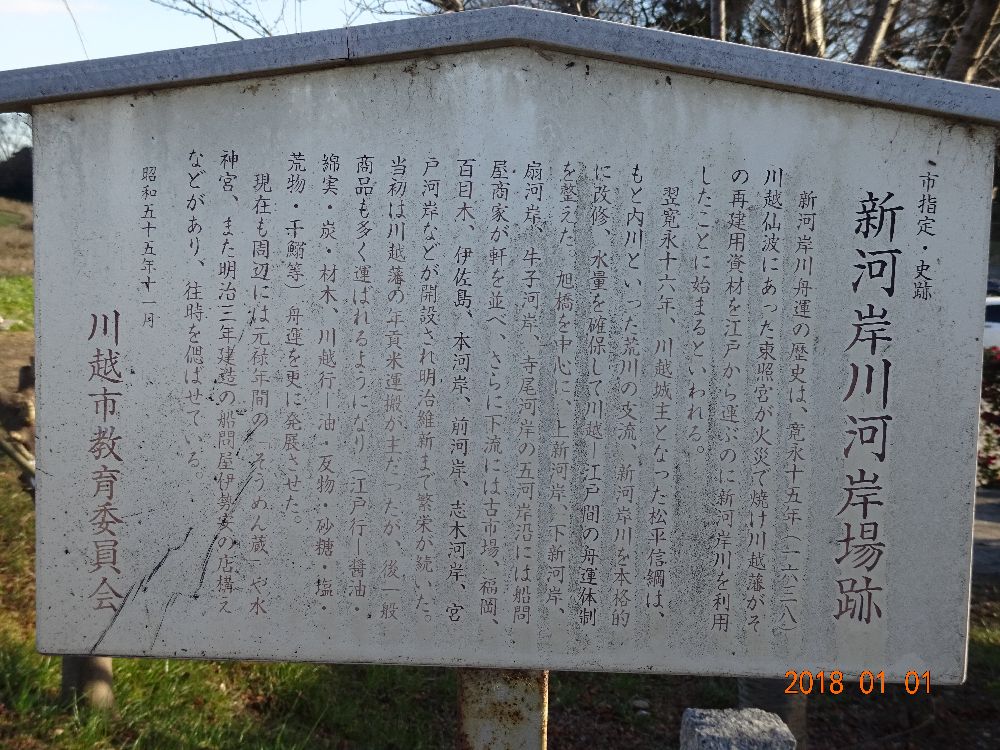 市指定・史跡
新河岸川河岸場跡
新河岸川舟運の歴史は、寛永十五年（一六三八）
川越仙波にあった東照宮が火災で焼け川越藩がそ
の再建用資材を江戸から運ぶのに新河岸川を利用
したことに始まるといわれる。
翌寛永十六年、川越城主となった松平信綱は、
もと内川といった荒川の支流、新河岸川を本格的
に改修、水量を確保して川越―江戸間の舟運体制
を整えた。旭橋を中心に、上新河岸、下新河岸、
扇河岸、牛子河岸、寺尾河岸の五河岸沿には船問
屋商家が軒を並べ、さらに下流には古市場、福岡、
百目木、伊佐島、本河岸、前河岸、志木河岸、宮
戸河岸などが開設され明治維新まで繁栄が続いた。
当初は川越藩の年貢米運搬が主だったが、後一般
商品も多く運ばれるようになり（江戸行―醤油・
綿実・炭・材木、川越行―油・反物・砂糖・塩・
荒物・干鰯等）舟運を更に発展させた。
現在も周辺には元禄年間の「そうめん蔵」や水
神宮、また明治三年建造の船問屋伊勢安の店構え
などがあり、往時を偲ばせている。
昭和五十五年十一月
川越市教育委員会
2018 01 01